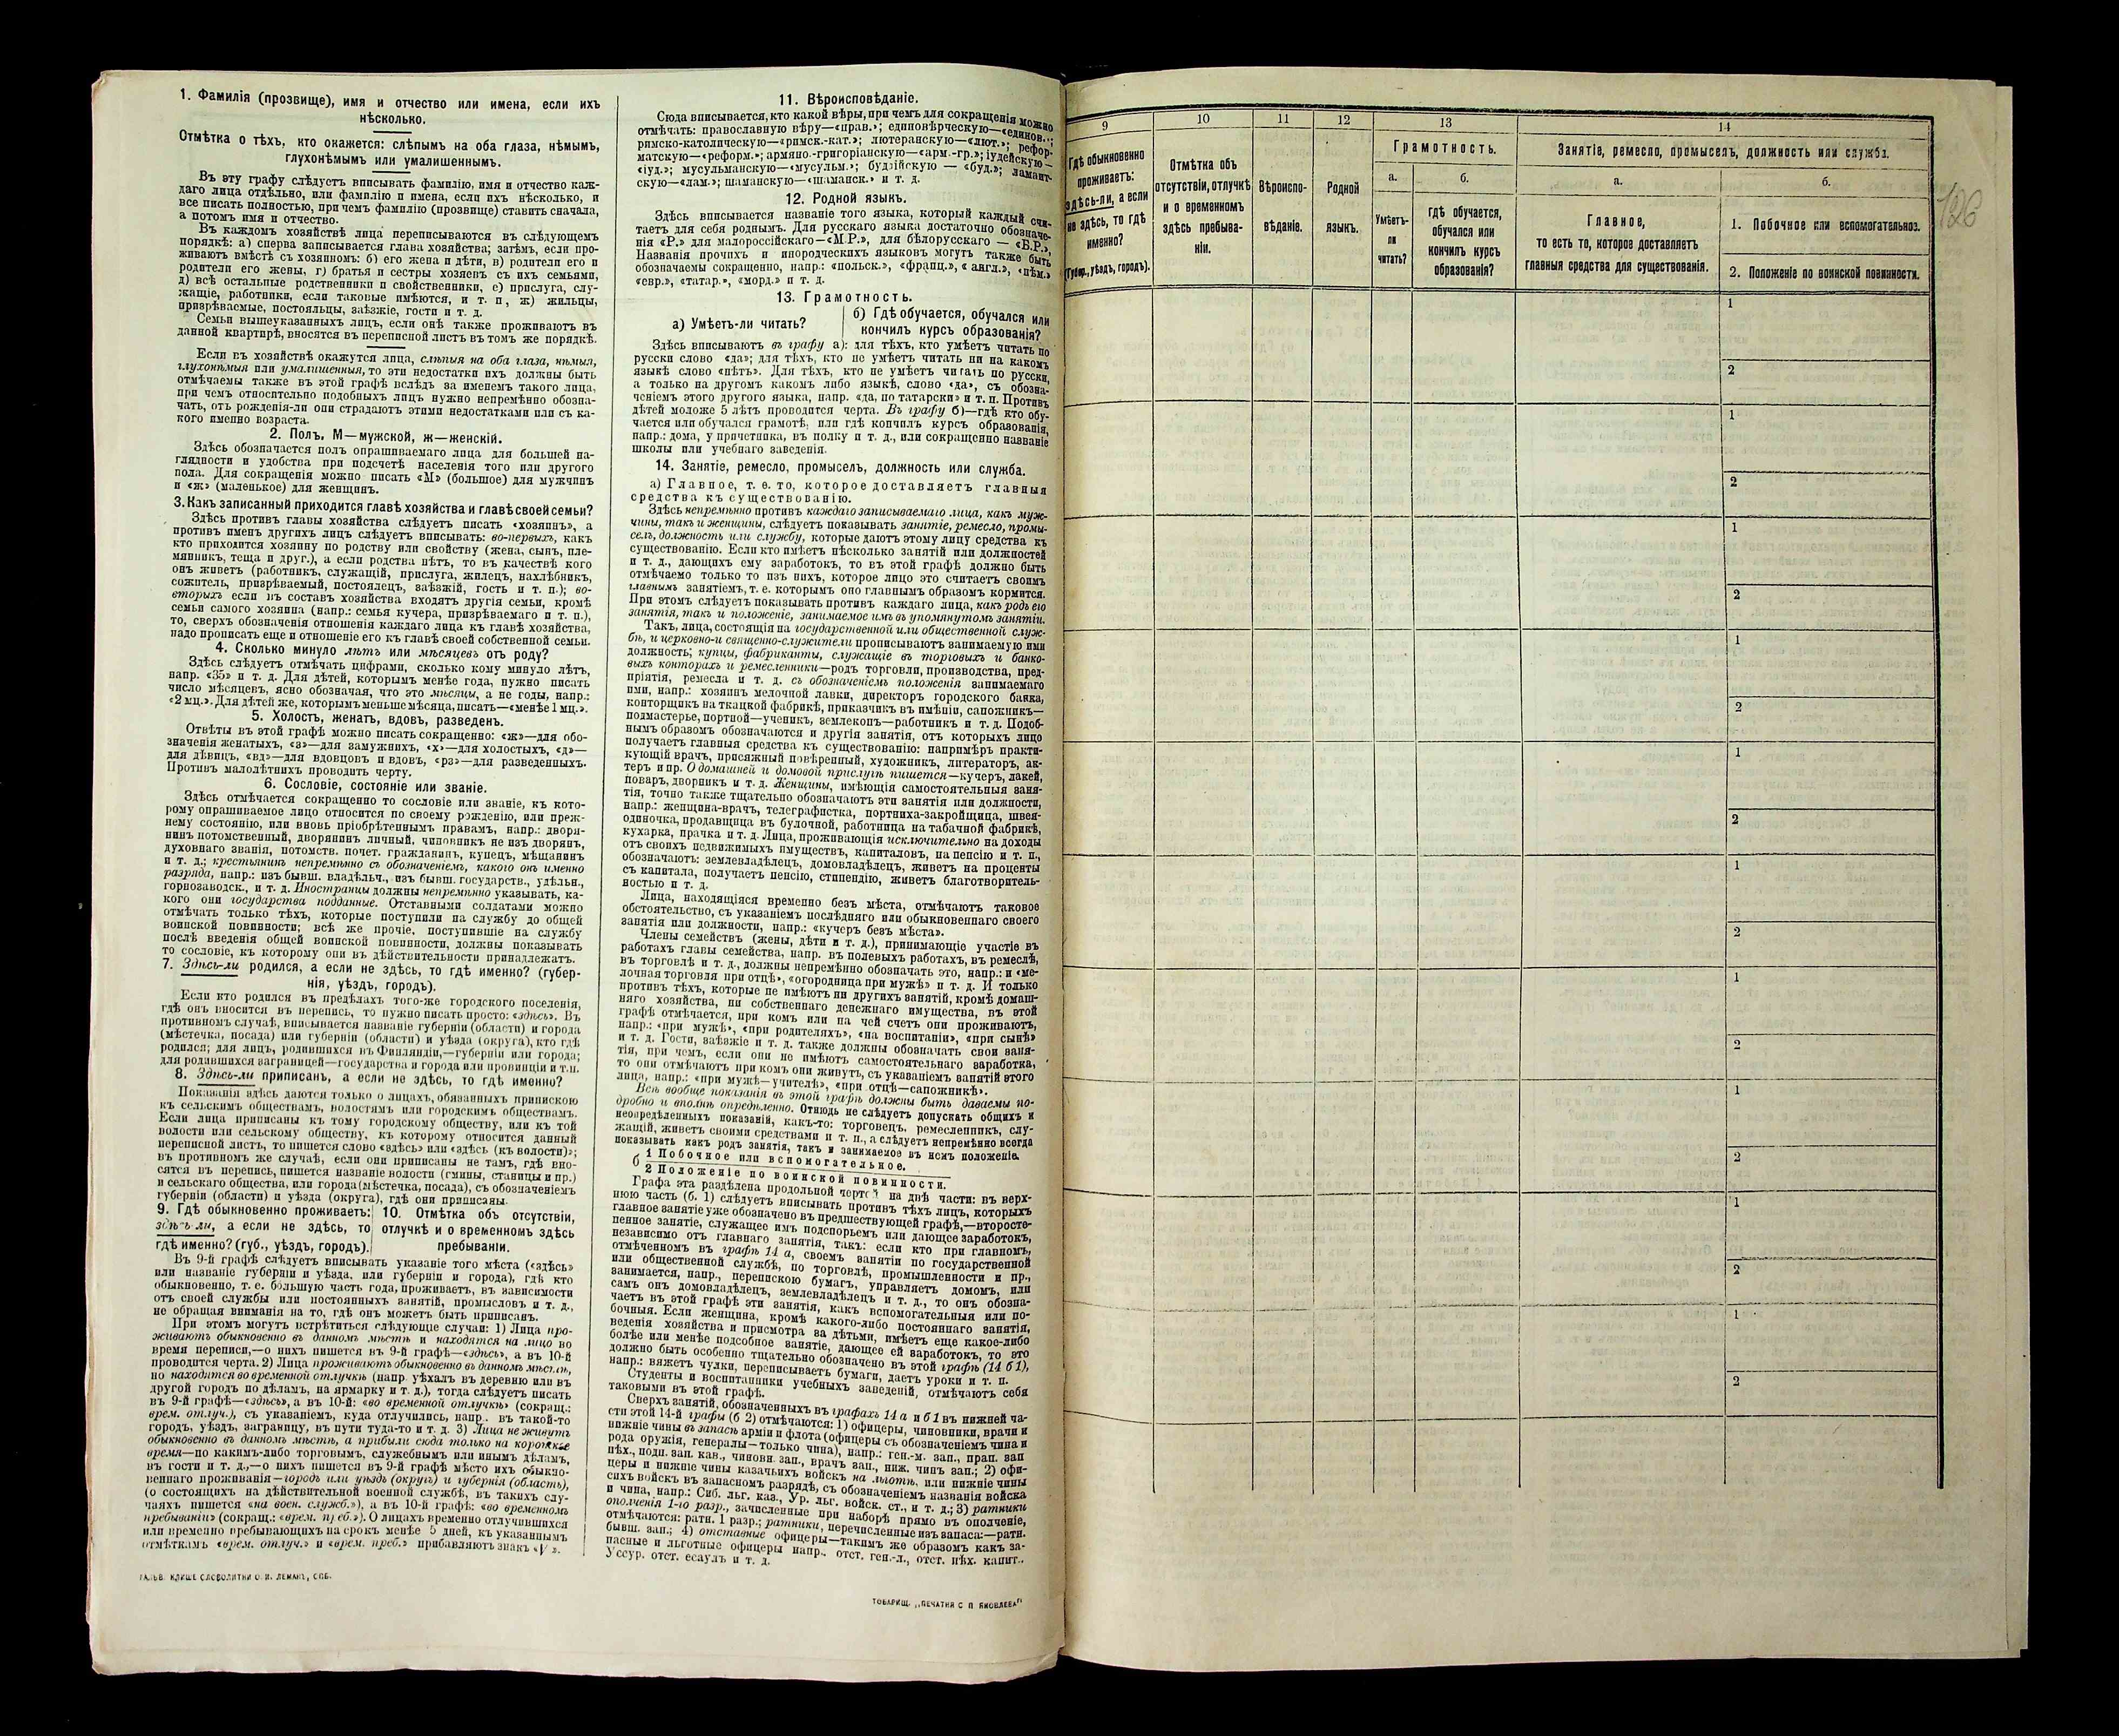 1. Фамилія (прозвище), имя и отчество или имена, если ихъ
нѣсколько.
Отмѣтка о тѣхъ, кто окажется: слѣпымъ на оба глаза, нѣмымъ,
глухонѣмымъ или умалишеннымъ.
Въ эту графу слѣдуетъ вписывать фамилію, имя и отчество каж-
даго лица отдѣльно, или фамилію и имена, если ихъ нѣсколько, и
все писать полностью, при чемъ фамилію (прозвище) ставить сначала,
а потомъ имя и отчество.
Въ каждомъ хозяйствѣ лица переписываются въ слѣдующемъ
порядкѣ: а) сперва записывается глава хозяйства; затѣмъ, если про-
живаютъ вмѣстѣ съ хозяиномъ: б) его жена и дѣти, в) родители его и
родители его жены, г) братья и сестры хозяевъ съ ихъ семьями,
д) всѣ остальные родственники и свойственники, е) прислуга, слу-
жащіе, работники, если таковые имѣются, и т. п, ж) жильцы,
призрѣваемые, постояльцы, заѣзжіе, гости и т. д.
Семьи вышеуказанныхъ лицъ, если онѣ также проживаютъ въ
данной квартирѣ, вносятся въ переписной листъ въ томъ же порядкѣ.
Если въ хозяйствѣ окажутся лица, слѣпыя на оба глаза, нѣмыя,
глухонѣмыя или умалишенныя, то эти недостатки ихъ должны быть
отмѣчаемы также въ этой графѣ вслѣдъ за именемъ такого лица,
при чемъ относительно подобныхъ лицъ нужно непремѣнно обозна-
чать, отъ рожденія-ли они страдаютъ этими недостатками или съ ка-
кого именно возраста.
2. Полъ, М—мужской, ж—женскій.
Здѣсь обозначается полъ опрашиваемаго лица для большей на-
глядности и удобства при подсчетѣ населенія того или другого
пола. Для сокращенія можно писать «М» (большое) для мужчинъ
и «ж» (маленькое) для женщинъ.
3. Какъ записанный приходится главѣ хозяйства и главѣ своей семьи?
Здѣсь противъ главы хозяйства слѣдуетъ писать «хозяинъ», а
противъ именъ другихъ лицъ слѣдуетъ вписывать: во-первыхъ, какъ
кто приходится хозяину по родству или свойству (жена, сынъ, пле-
мянникъ, теща и друг.), а если родства нѣтъ, то въ качествѣ кого
онъ живетъ (работникъ, служащій, прислуга, жилецъ, нахлѣбникъ,
сожитель, призрѣваемый, постоялецъ, заѣзжій, гость и т. п.); во-
вторыхъ если въ составъ хозяйства входятъ другія семьи, кромѣ
семьи самого хозяина (напр.: семья кучера, призрѣваемаго и т. п.),
то, сверхъ обозначенія отношенія каждаго лица къ главѣ хозяйства,
надо прописать еще и отношеніе его къ главѣ своей собственной семьи.
4. Сколько минуло лѣтъ или мѣсяцевъ отъ роду?
Здѣсь слѣдуетъ отмѣчать цифрами, сколько кому минуло лѣтъ,
напр. «35» и т. д. Для дѣтей, которымъ менѣе года, нужно писать
число мѣсяцевъ, ясно обозначая, что это мѣсяцы, а не годы, напр.:
«2 мц.». Для дѣтей же, которымъ меньше мѣсяца, писать—«менѣе 1 мц.».
5. Холостъ, женатъ, вдовъ, разведенъ.
Отвѣты въ этой графѣ можно писать сокращенно: «ж»—для обо-
значенія женатыхъ, «з»—для замужнихъ, «х»—для холостыхъ, «д»—
для дѣвицъ, «вд»—для вдовцовъ и вдовъ, «рз»—для разведенныхъ.
Противъ малолѣтнихъ проводить черту.
6. Сословіе, состояніе или званіе.
Здѣсь отмѣчается сокращенно то сословіе или званіе, къ кото-
рому опрашиваемое лицо относится по своему рожденію, или преж-
нему состоянію, или вновь пріобрѣтеннымъ правамъ, напр.: дворя-
нинъ потомственный, дворянинъ личный, чиновникъ не изъ дворянъ,
духовнаго званія, потомств. почет. гражданинъ, купецъ, мѣщанинъ
и т. д.; крестьянинъ непремѣнно съ обозначеніемъ, какого онъ именно
разряда, напр.: изъ бывш. владѣльч., изъ бывш. государств., удѣльн.,
горнозаводск., и т. д. Иностранцы должны непремѣнно указывать, ка-
кого они государства подданные. Отставными солдатами можно
отмѣчать только тѣхъ, которые поступили на службу до общей
воинской повинности; всѣ же прочіе, поступившіе на службу
послѣ введенія общей воинской повинности, должны показывать
то сословіе, къ которому они въ дѣйствительности принадлежатъ.
7. Здѣсь-ли родился, а если не здѣсь, то гдѣ именно? (губер-
нія, уѣздъ, городъ).
Если кто родился въ предѣлахъ того-же городского поселенія,
гдѣ онъ вносится въ перепись, то нужно писать просто: «здѣсь». Въ
противномъ случаѣ, вписывается названіе губерніи (области) и города
(мѣстечка, посада) или губерніи (области) и уѣзда (округа), кто гдѣ
родился; для лицъ, родившихся въ Финляндіи,—губерніи или города;
для родившихся заграницей—государства и города или провинціи и т.п.
8. Здѣсь-ли приписанъ, а если не здѣсь, то гдѣ именно?
Показанія здѣсь даются только о лицахъ, обязанныхъ припискою
къ сельскимъ обществамъ, волостямъ или городскимъ обществамъ.
Если лица приписаны къ тому городскому обществу, или къ той
волости или сельскому обществу, къ которому относится данный
переписной листъ, то пишется слово «здѣсь» или «здѣсь (къ волости)»;
въ противномъ же случаѣ, если они приписаны не тамъ, гдѣ вно-
сятся въ перепись, пишется названіе волости (гмины, станицы и пр.)
и сельскаго общества, или города (мѣстечка, посада), съ обозначеніемъ
губерніи (области) и уѣзда (округа), гдѣ они приписаны.
9. Гдѣ обыкновенно проживаетъ:
здѣсь-ли, а если не здѣсь, то
гдѣ именно? (губ., уѣздъ, городъ).
10. Отмѣтка объ отсутствіи,
отлучкѣ и о временномъ здѣсь
пребываніи.
Въ 9-й графѣ слѣдуетъ вписывать указаніе того мѣста («здѣсь»
или названіе губерніи и уѣзда, или губерніи и города), гдѣ кто
обыкновенно, т. е. бо́льшую часть года, проживаетъ, въ зависимости
отъ своей службы или постоянныхъ занятій, промысловъ и т. д.,
не обращая вниманія на то, гдѣ онъ можетъ быть приписанъ.
При этомъ могутъ встрѣтиться слѣдующіе случаи: 1) Лица про-
живаютъ обыкновенно въ данномъ мѣстѣ и находятся на лицо во
время переписи,—о нихъ пишется въ 9-й графѣ—«здѣсь», а въ 10-й
проводится черта. 2) Лица проживаютъ обыкновенно въ данномъ мѣстѣ,
но находятся во временной отлучкѣ (напр. уѣхалъ въ деревню или въ
другой городъ по дѣламъ, на ярмарку и т. д.), тогда слѣдуетъ писать
въ 9-й графѣ—«здѣсь», а въ 10-й: «во временной отлучкѣ» (сокращ.:
врем. отлуч.), съ указаніемъ, куда отлучились, напр.. въ такой-то
городъ, уѣздъ, заграницу, въ пути туда-то и т. д. 3) Лица не живутъ
обыкновенно въ данномъ мѣстѣ, а прибыли сюда только на короткое
время—по какимъ-либо торговымъ, служебнымъ или инымъ дѣламъ,
въ гости и т. д.,—о нихъ пишется въ 9-й графѣ мѣсто ихъ обыкно-
веннаго проживанія—городъ или уѣздъ (округъ) и губернія (область),
(о состоящихъ на дѣйствительной военной службѣ, въ такихъ слу-
чаяхъ пишется «на воен. служб.»), а въ 10-й графѣ: «во временномъ
пребываніи» (сокращ.: «врем. преб.»). О лицахъ временно отлучившихся
или временно пребывающихъ на срокъ менѣе 5 дней, къ указаннымъ
отмѣткамъ «врем. отлуч.» и «врем. преб.» прибавляютъ знакъ «V».
ГАЛЬВ. КЛИШЕ СЛОВОЛИТНИ О. И. ЛЕМАНЪ, СПБ.
11. Вѣроисповѣданіе.
Сюда вписывается, кто какой вѣры, при чемъ для сокращенія можно
отмѣчать: православную вѣру—«прав.»; единовѣрческую—«единов.»;
римско-католическую—«римск.-кат.»; лютеранскую—«лют.»; рефор-
матскую—«реформ.»; армяно-григоріанскую—«арм.-гр.»; іудейскую—
«іуд.»; мусульманскую—«мусульм.»; буддійскую — «буд.»; ламаит-
скую—«лам.»; шаманскую—«шаманск.» и т. д.
12. Родной языкъ.
Здѣсь вписывается названіе того языка, который каждый счи-
таетъ для себя роднымъ. Для русскаго языка достаточно обозначе-
нія «Р.» для малороссійскаго—«М.Р.», для бѣлорусскаго — «Б.Р.».
Названія прочихъ и инородческихъ языковъ могутъ также быть
обозначаемы сокращенно, напр.: «польск.», «франц.», «англ.», «нѣм.»
«евр.», «татар.», «морд.» и т. д.
13. Грамотность.
а) Умѣетъ-ли читать?
б) Гдѣ обучается, обучался или
кончилъ курсъ образованія?
Здѣсь вписываютъ въ графу а): для тѣхъ, кто умѣетъ читать по
русски слово «да»; для тѣхъ, кто не умѣетъ читать ни на какомъ
языкѣ слово «нѣтъ». Для тѣхъ, кто не умѣетъ читать по русски,
а только на другомъ какомъ либо языкѣ, слово «да», съ обозна-
ченіемъ этого другого языка, напр. «да, по татарски» и т. п. Противъ
дѣтей моложе 5 лѣтъ проводится черта. Въ графу б)—гдѣ кто обу-
чается или обучался грамотѣ, или гдѣ кончилъ курсъ образованія,
напр.: дома, у причетника, въ полку и т. д., или сокращенно названіе
школы или учебнаго заведенія.
14. Занятіе, ремесло, промыселъ, должность или служба.
а) Главное, т. е. то, которое доставляетъ главныя
средства къ существованію.
Здѣсь непремѣнно противъ каждаго записываемаго лица, какъ муж-
чины, такъ и женщины, слѣдуетъ показывать занятіе, ремесло, промы-
селъ, должность или службу, которые даютъ этому лицу средства къ
существованію. Если кто имѣетъ нѣсколько занятій или должностей
и т. д., дающихъ ему заработокъ, то въ этой графѣ должно быть
отмѣчаемо только то изъ нихъ, которое лицо это считаетъ своимъ
главнымъ занятіемъ, т. е. которымъ оно главнымъ образомъ кормится.
При этомъ слѣдуетъ показывать противъ каждаго лица, какъ родъ его
занятія, такъ и положеніе, занимаемое имъ въ упомянутомъ занятіи.
Такъ, лица, состоящія на государственной или общественной служ-
бѣ, и церковно-и священно-служители прописываютъ занимаемую ими
должность; купцы, фабриканты, служащіе въ торговыхъ и банко-
выхъ конторахъ и ремесленники—родъ торговли, производства, пред-
пріятія, ремесла и т. д. съ обозначеніемъ положенія занимаемаго
ими, напр.: хозяинъ мелочной лавки, директоръ городского банка,
конторщикъ на ткацкой фабрикѣ, приказчикъ въ имѣніи, сапожникъ—
подмастерье, портной—ученикъ, землекопъ—работникъ и т. д. Подоб-
нымъ образомъ обозначаются и другія занятія, отъ которыхъ лицо
получаетъ главныя средства къ существованію: напримѣръ практи-
кующій врачъ, присяжный повѣренный, художникъ, литераторъ, ак-
теръ и пр. О домашней и домовой прислугѣ пишется—кучеръ, лакей,
поваръ, дворникъ и т. д. Женщины, имѣющія самостоятельныя заня-
тія, точно также тщательно обозначаютъ эти занятія или должности,
напр.: женщина-врачъ, телеграфистка, портниха-закройщица, швея-
одиночка, продавщица въ булочной, работница на табачной фабрикѣ,
кухарка, прачка и т. д. Лица, проживающія исключительно на доходы
отъ своихъ недвижимыхъ имуществъ, капиталовъ, на пенсію и т. п.,
обозначаютъ: землевладѣлецъ, домовладѣлецъ, живетъ на проценты
съ капитала, получаетъ пенсію, стипендію, живетъ благотворитель-
ностью и т. д.
Лица, находящіяся временно безъ мѣста, отмѣчаютъ таковое
обстоятельство, съ указаніемъ послѣдняго или обыкновеннаго своего
занятія или должности, напр.: «кучеръ безъ мѣста».
Члены семействъ (жены, дѣти и т. д.), принимающіе участіе въ
работахъ главы семейства, напр. въ полевыхъ работахъ, въ ремеслѣ,
въ торговлѣ и т. д., должны непремѣнно обозначать это, напр.: и «ме-
лочная торговля при отцѣ», «огородница при мужѣ» и т. д. И только
противъ тѣхъ, которые не имѣютъ ни другихъ занятій, кромѣ домаш-
няго хозяйства, ни собственнаго денежнаго имущества, въ этой
графѣ отмѣчается, при комъ или на чей счетъ они проживаютъ,
напр.: «при мужѣ», «при родителяхъ», «на воспитаніи», «при сынѣ»
и т. д. Гости, заѣзжіе и т. д. также должны обозначать свои заня-
тія, при чемъ, если они не имѣютъ самостоятельнаго заработка,
то они отмѣчаютъ при комъ они живутъ, съ указаніемъ занятій этого
лица, напр.: «при мужѣ—учителѣ», «при отцѣ—сапожникѣ».
Всѣ вообще показанія въ этой графѣ должны быть даваемы по-
дробно и вполнѣ опредѣленно. Отнюдь не слѣдуетъ допускать общихъ и
неопредѣленныхъ показаній, какъ-то: торговецъ, ремесленникъ, слу-
жащій, живетъ своими средствами и т. п., а слѣдуетъ непремѣнно всегда
показывать какъ родъ занятія, такъ и занимаемое въ немъ положеніе.
б 1 Побочное или вспомогательное.
2 Положеніе по воинской повинности.
Графа эта раздѣлена продольной чертой на двѣ части: въ верх-
нюю часть (б. 1) слѣдуетъ вписывать противъ тѣхъ лицъ, которыхъ
главное занятіе уже обозначено въ предшествующей графѣ,—второсте-
пенное занятіе, служащее имъ подспорьемъ или дающее заработокъ,
независимо отъ главнаго занятія, такъ: если кто при главномъ,
отмѣченномъ въ графѣ 14 а, своемъ занятіи по государственной
или общественной службѣ, по торговлѣ, промышленности и пр.,
занимается, напр., перепискою бумагъ, управляетъ домомъ, или
самъ онъ домовладѣлецъ, землевладѣлецъ и т. д., то онъ обозна-
чаетъ въ этой графѣ эти занятія, какъ вспомогательныя или по-
бочныя. Если женщина, кромѣ какого-либо постояннаго занятія,
веденія хозяйства и присмотра за дѣтьми, имѣетъ еще какое-либо
болѣе или менѣе подсобное занятіе, дающее ей заработокъ, то это
должно быть особенно тщательно обозначено въ этой графѣ (14 б 1),
напр.: вяжетъ чулки, переписываетъ бумаги, даетъ уроки и т. п.
Студенты и воспитанники учебныхъ заведеній, отмѣчаютъ себя
таковыми въ этой графѣ.
Сверхъ занятій, обозначенныхъ въ графахъ 14 а и б 1 въ нижней ча-
сти этой 14-й графы (б 2) отмѣчаются: 1) офицеры, чиновники, врачи и
нижніе чины въ запасѣ арміи и флота (офицеры съ обозначеніемъ чина и
рода оружія, генералы—только чина), напр.: ген.-м. зап., прап. зап
пѣх., подп. зап. кав., чиновн. зап., врачъ зап., ниж. чинъ зап.; 2) офи-
церы и нижніе чины казачьихъ войскъ на льготѣ, или нижніе чины
сихъ войскъ въ запасномъ разрядѣ, съ обозначеніемъ названія войска
и чина, напр.: Сиб. льг. каз., Ур. льг. войск. ст., и т. д.; 3) ратники
ополченія 1-го разр., зачисленные при наборѣ прямо въ ополченіе,
отмѣчаются: ратн. 1 разр.; ратники, перечисленные изъ запаса:—ратн.
бывш. зап.; 4) отставные офицеры—такимъ же образомъ какъ за-
пасные и льготные офицеры напр., отст. ген.-л., отст. пѣх. капит.,
Уссур. отст. есаулъ и т. д.
ТОВАРИЩ. „ПЕЧАТНЯ С П ЯКОВЛЕВА"
9
10
11
12
13
14
Гдѣ обыкновенно
проживаетъ:
здѣсь-ли, а если
не здѣсь, то гдѣ
именно?
(Губер., уѣздъ, городъ).
Отмѣтка объ
отсутствіи, отлучкѣ
и о временномъ
здѣсь пребыва-
ніи.
Вѣроиспо-
вѣданіе.
Родной
языкъ.
Грамотность.
а.
Умѣетъ-
ли
читать?
б.
Гдѣ обучается,
обучался или
кончилъ курсъ
образованія?
Занятіе, ремесло, промыселъ, должность или служба.
а.
Главное,
то есть то, которое доставляетъ
главныя средства для существованія.
б.
1. Побочное или вспомогательное.
2. Положеніе по воинской повинности.
126
1
2
1
2
1
2
1
2
1
2
1
2
1
2
1
2
1
2
1
2